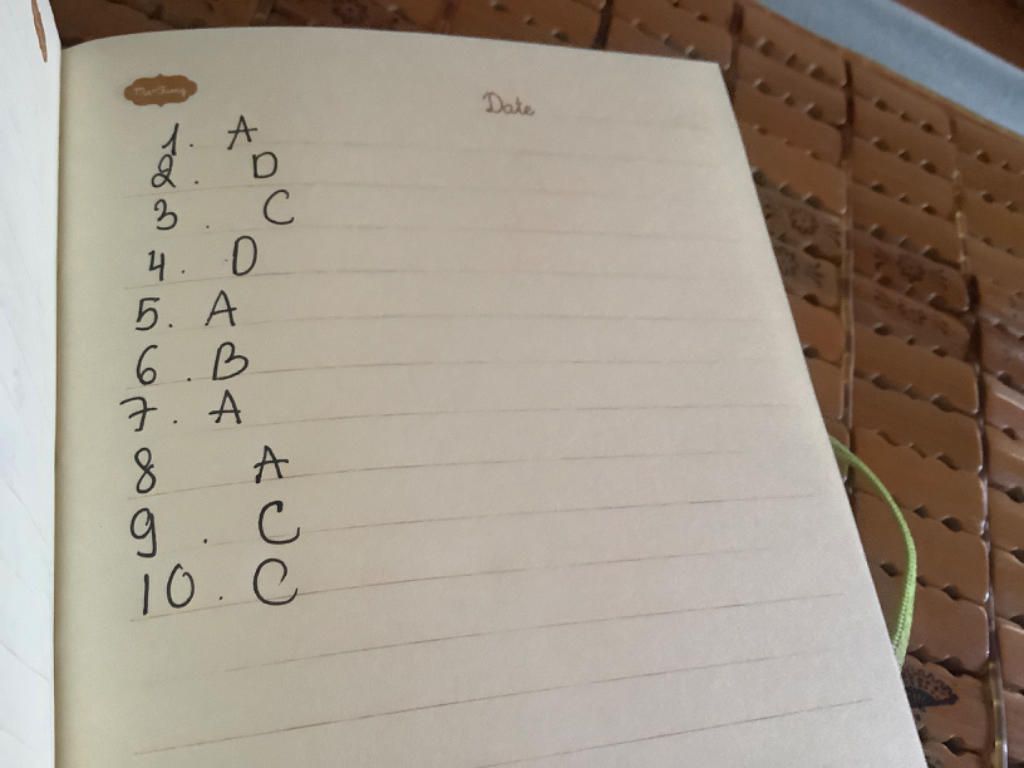 Date
1. A
2. D
3. C
4. D
5. A
6. B
7. A
8 A
9. C
10. C